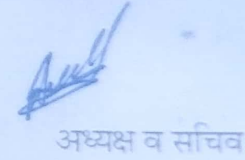 अध्यक्ष व सचिव